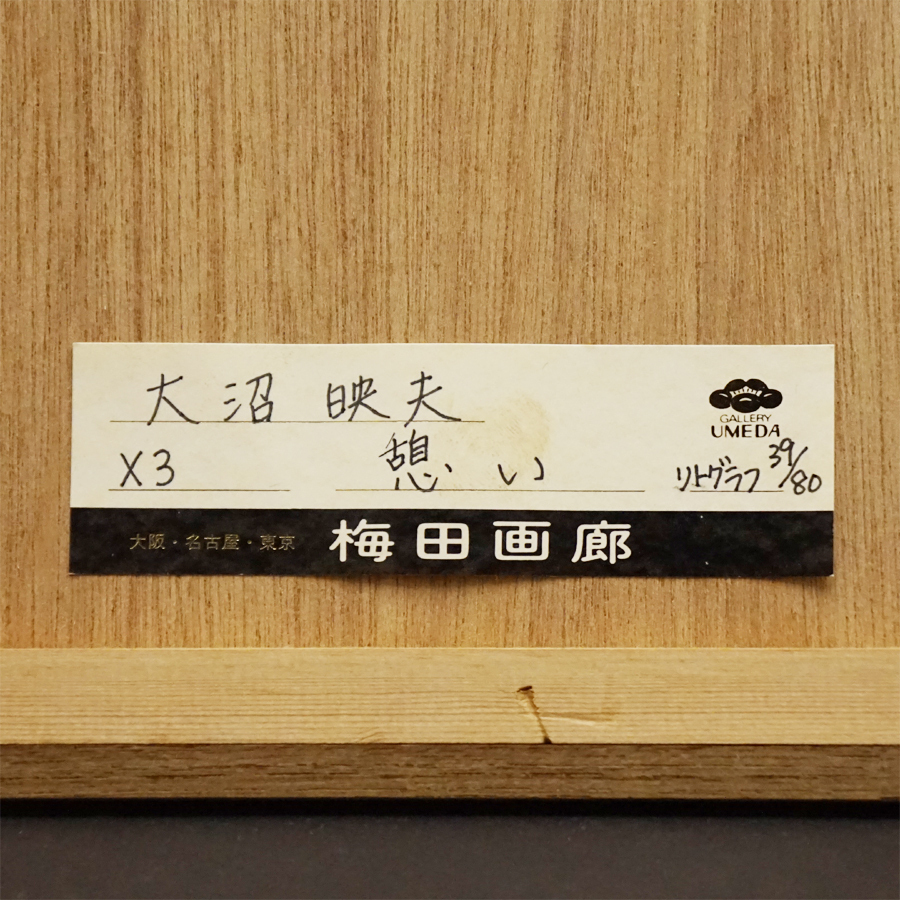 大沼 映夫
GALLERY
UMEDA
X3 憩い リトグラフ 39/80
大阪・名古屋・東京 梅田画廊